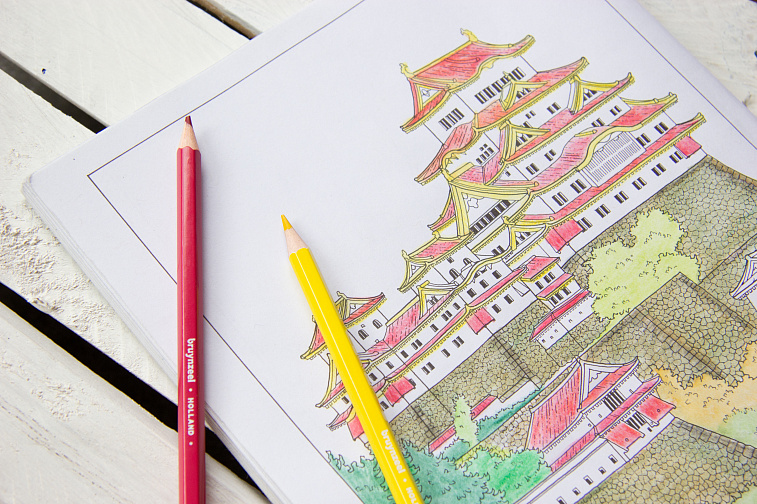 bruynzeel • HOLLAND •
bruynzeel